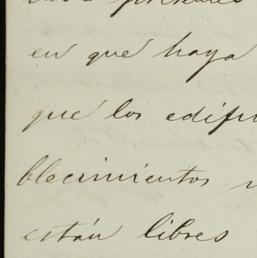 en que haya
que los edifi
blecimientos
están libres